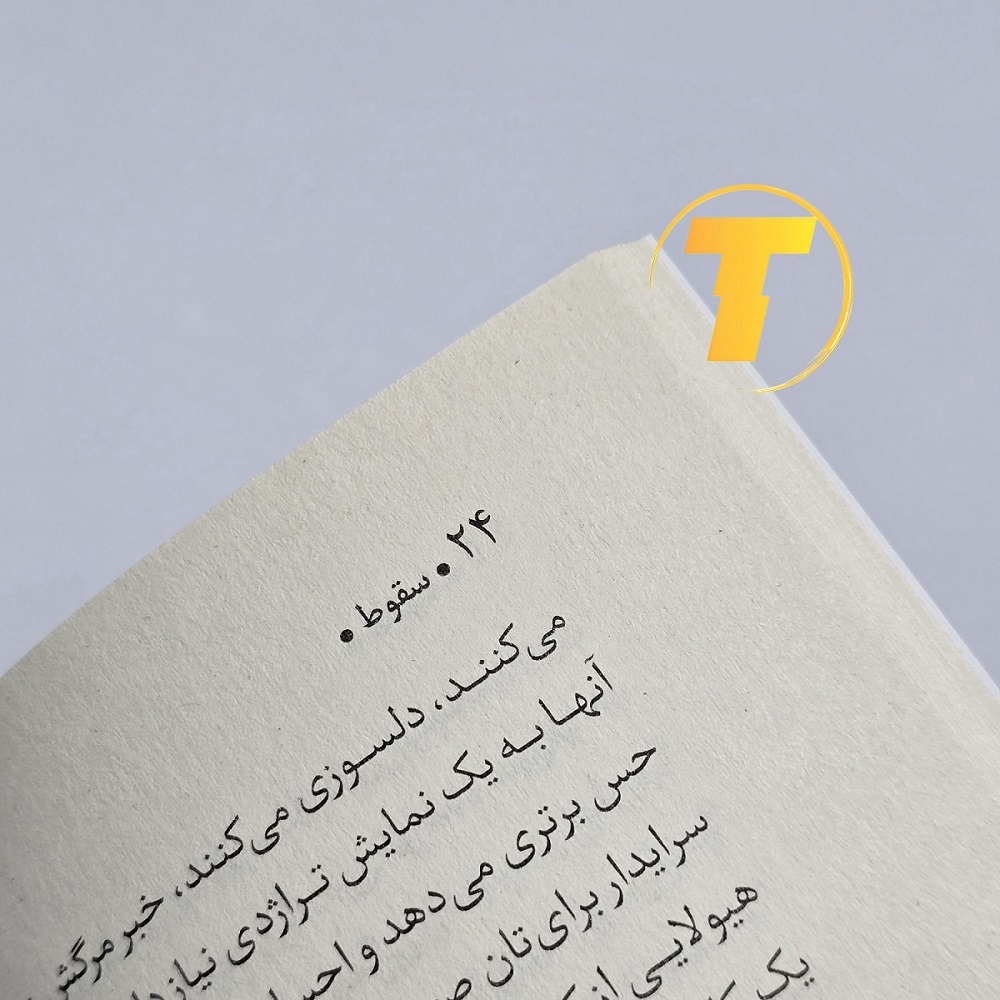 T
۲۴ • سقوط •
می‌کننـد، دلسـوزی می‌کنند، خبر مرگش
آنهـا بـه یک نمایش تـراژدی نیاز
حس برتری می‌دهد و
سرایدار برای‌تان
هیولایـی
یک